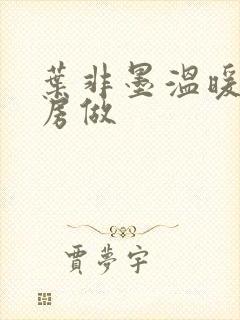 葉非墨溫暖
房做
賈夢宇